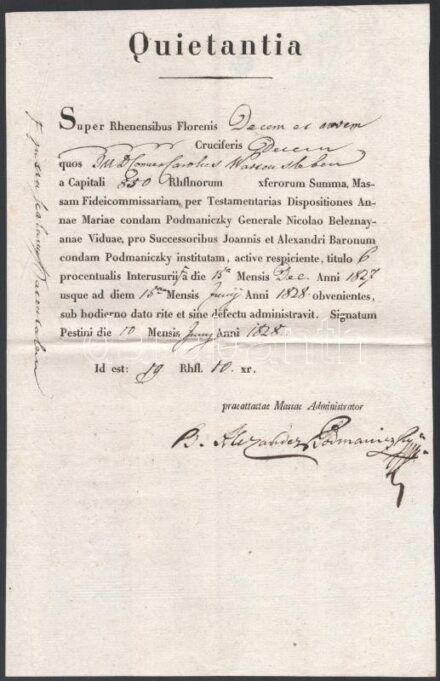 Quietantia
Super Rhenensibus Florenis Decem et novem
Cruciferis Decem
quos Carolus
a Capitali 850 Rhflnorum xferorum Summa, Mas-
sam Fideicommissariam, per Testamentarias Dispositiones An-
nae Mariae condam Podmaniczky Generale Nicolao Beleznay-
anae Viduae, pro Successoribus Joannis et Alexandri Baronum
condam Podmaniczky institutam, active respiciente, titulo 6
procentualis Interusurii a die 15a Mensis Dec. Anni 1827
usque ad diem 15am Mensis Junij Anni 1828 obvenientes,
sub hodierno dato rite et sine defectu administravit. Signatum
Pestini die 10 Mensis Juny Anni 1828
Id est: 19 Rhfl. 10. xr.
praeattactae Massae Administrator
B. Alexander Podmaniczky